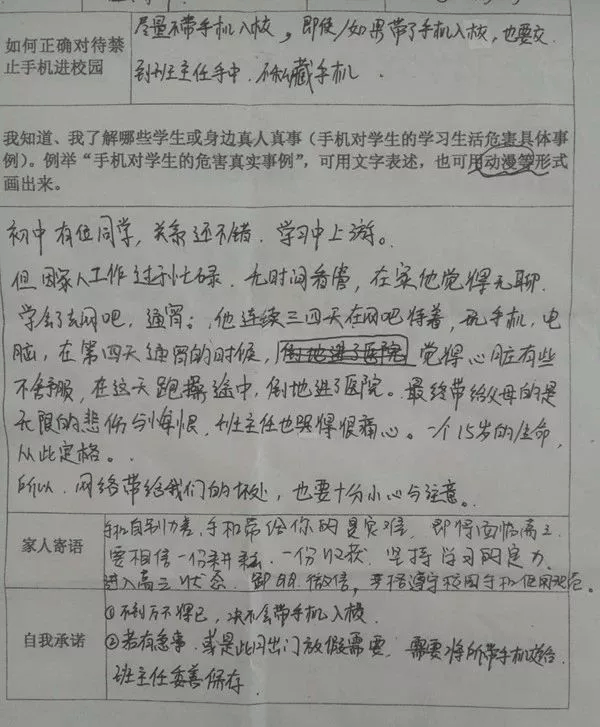 如何正确对待禁止手机进校园
尽量不带手机入校，即使/如果带了手机入校，也要交
到班主任手中，不私藏手机．
我知道、我了解哪些学生或身边真人真事（手机对学生的学习生活危害具体事
例）。例举“手机对学生的危害真实事例”，可用文字表述，也可用动漫等形式
画出来。
初中有位同学，关系还不错．学习中上游。
但因家人工作过于忙碌．无时间看管，在家他觉得无聊．
学会了去网吧，通宵；他连续三四天在网吧待着，玩手机，电
脑，在第四天通宵的时候，倒地进了医院 觉得心脏有些
不舒服，在这天跑操途中，倒地进了医院。最终带给父母的是
无限的悲伤与悔恨，班主任也哭得很痛心。一个15岁的生命，
从此定格。
所以．网络带给我们的坏处，也要十分小心与注意。
家人寄语
自制力差，手机带给你的是灾难．即将面临高三
要相信一份耕耘．一份收获．坚持学习的定力．
进入高三状态．卸QQ．微信，严格遵守校园手机使用规范。
自我承诺
①不到万不得已，决不会带手机入校．
②若有急事．或是此月出门放假需要，需要将所带手机送给
班主任妥善保存．